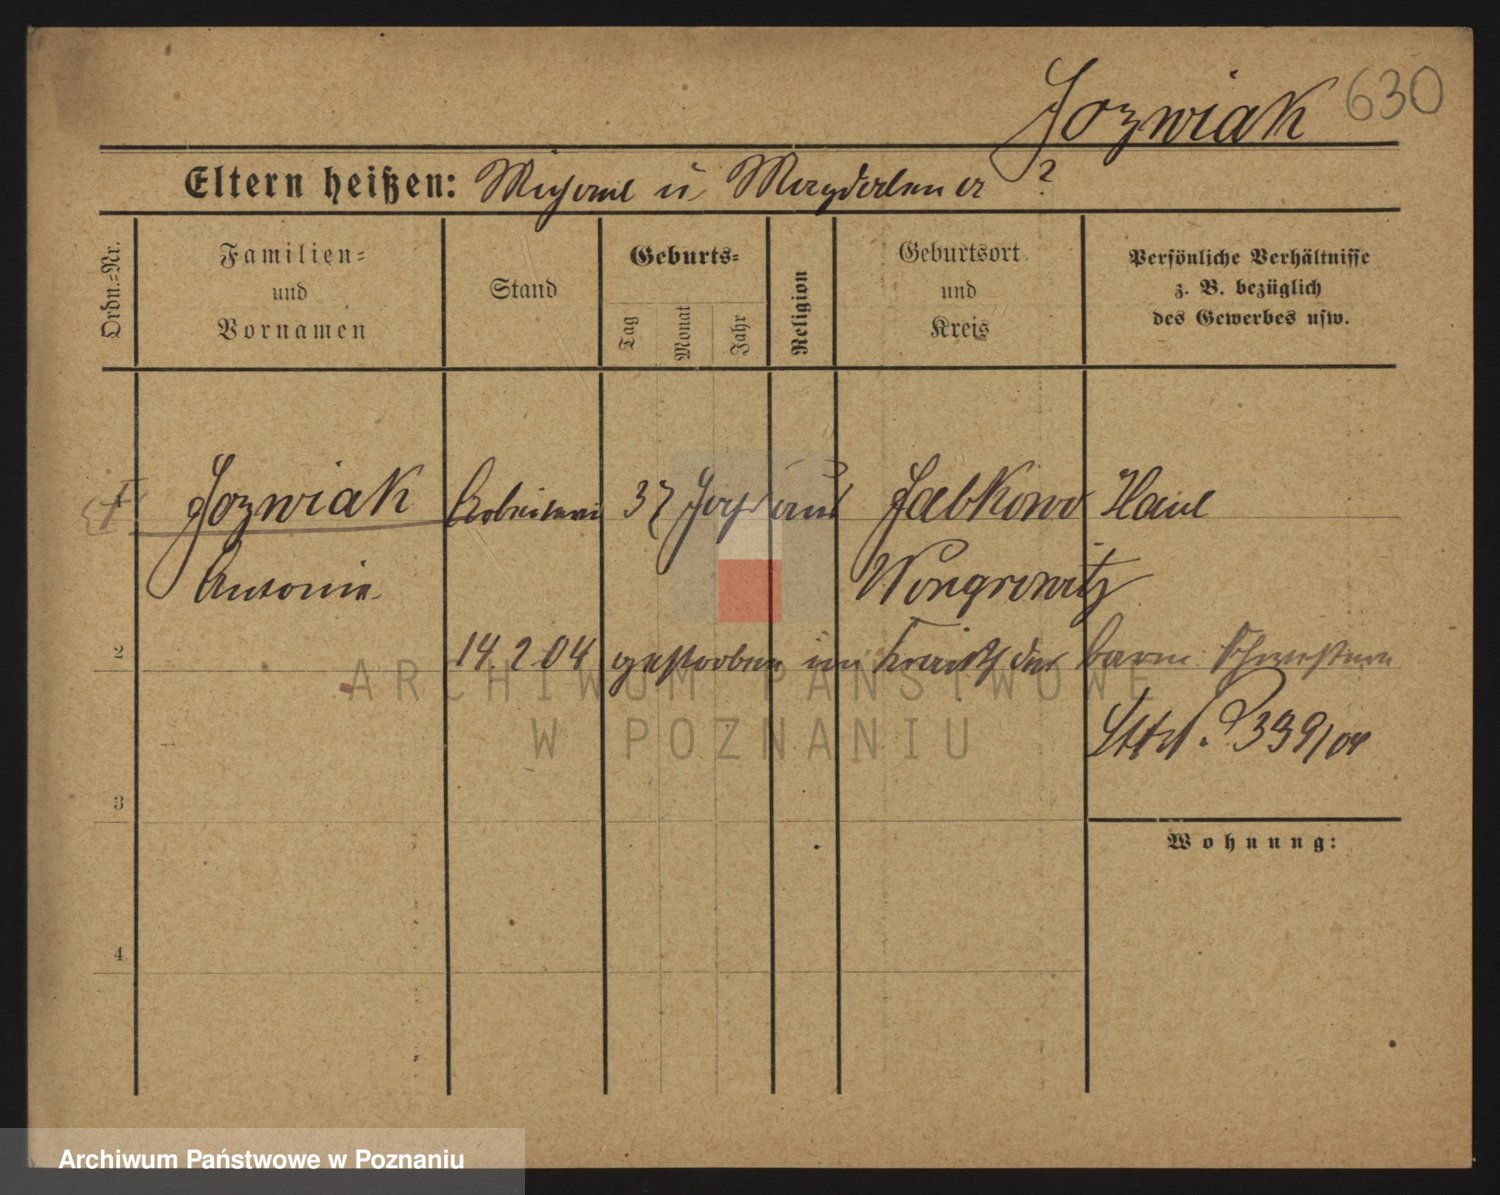 Jozwiak 630
Eltern heißen: Michael u. Magdalena ?
Ordn.-Nr.
Familien-
und
Vornamen
Stand
Geburts-
Tag
Monat
Jahr
Religion
Geburtsort
und
Kreis
Persönliche Verhältnisse
z. B. bezüglich
des Gewerbes usw.
Jozwiak Arbeiterin 37 Jahr alt Jabkowo
Antonie Wongrowitz
2 14. 2 04 gestorben im der barm. Schwestern
399/04
3
Wohnung:
4
ARCHIWUM PAŃSTWOWE
W POZNANIU
Archiwum Państwowe w Poznaniu